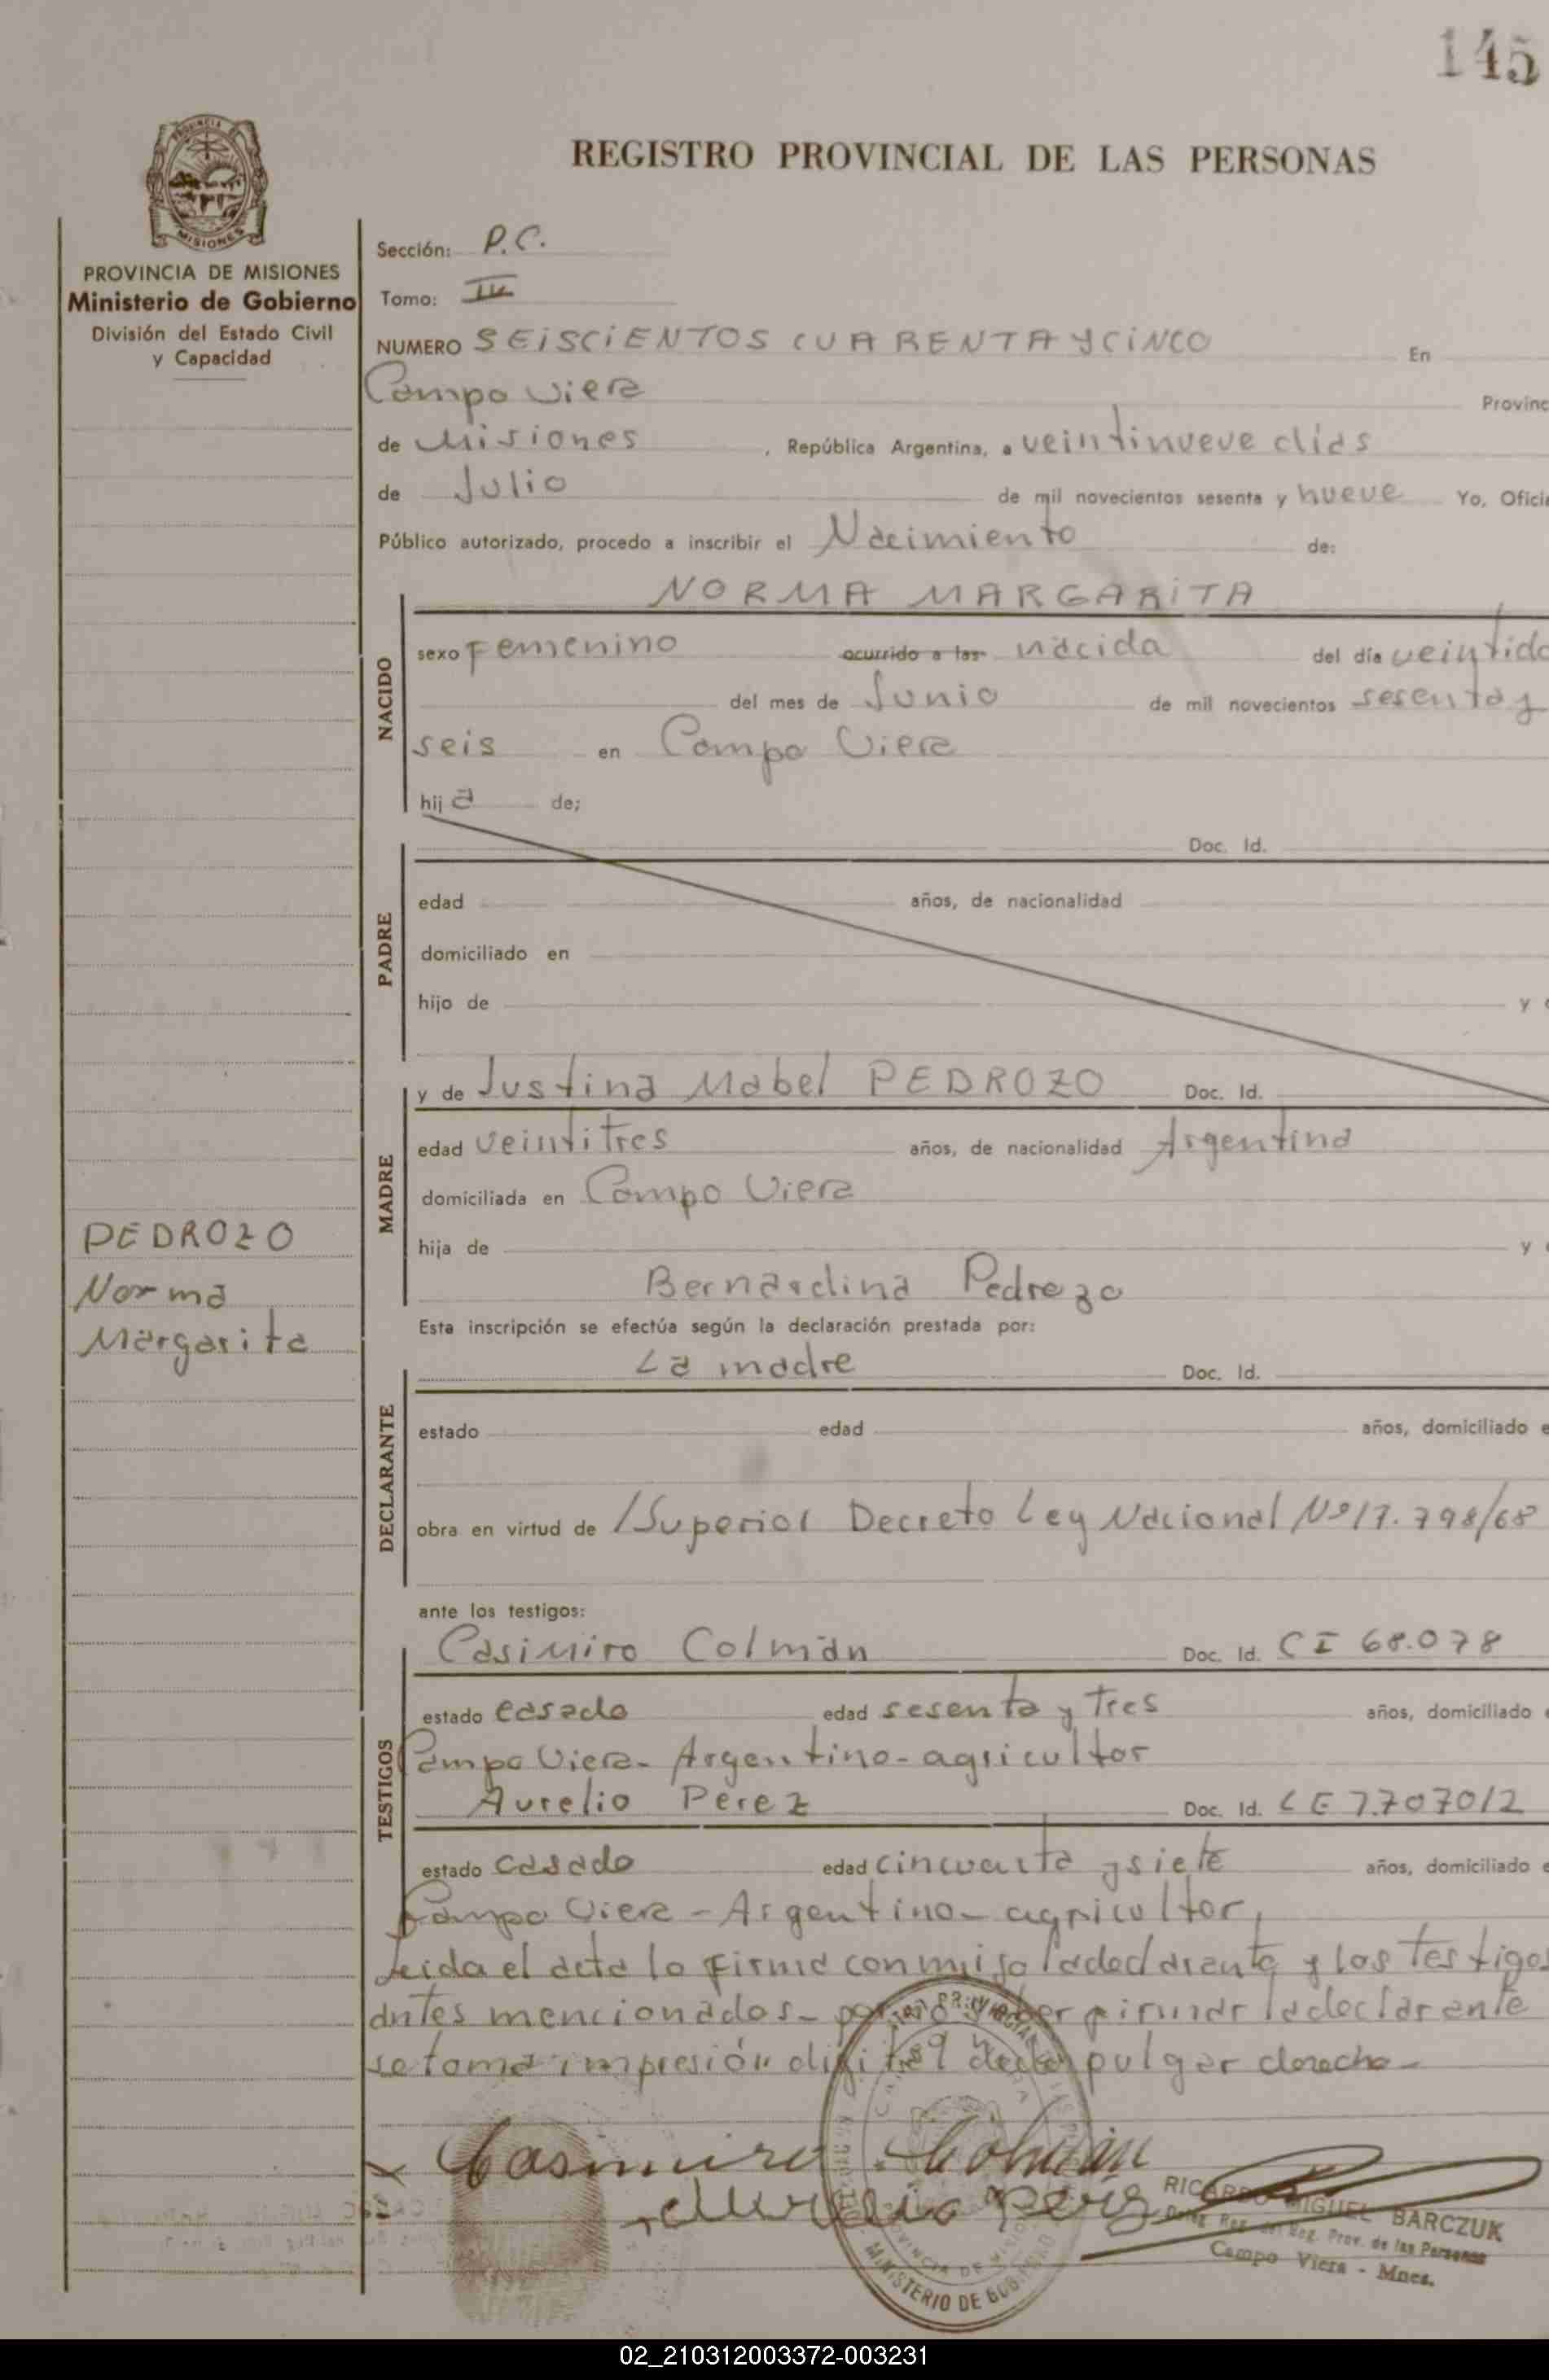 145
REGISTRO PROVINCIAL DE LAS PERSONAS
MISIONES
PROVINCIA DE MISIONES
Ministerio de Gobierno
División del Estado Civil
y Capacidad
Sección: P.C.
Tomo: IV
NUMERO SEISCIENTOS CUARENTA Y CINCO En
Campo Viera Provinc
de Misiones , República Argentina, a veintinueve días
de Julio de mil novecientos sesenta y nueve Yo, Ofici
Público autorizado, procedo a inscribir el Nacimiento de:
NORMA MARGARITA
NACIDO
sexo Femenino ocurrido a las nacida del día veintido
del mes de Junio de mil novecientos sesenta y
seis en Campo Viera
hija de;
PADRE
Doc. Id.
edad años, de nacionalidad
domiciliado en
hijo de y
MADRE
y de Justina Mabel PEDROZO Doc. Id.
edad veintitres años, de nacionalidad Argentina
domiciliada en Campo Viera
hija de y
Bernardina Pedrozo
PEDROZO
Norma
Margarita
Esta inscripción se efectúa según la declaración prestada por:
DECLARANTE
La madre Doc. Id.
estado edad años, domiciliado e
obra en virtud de /Superior Decreto Ley Nacional Nº17.798/68
ante los testigos:
TESTIGOS
Casimiro Colmán Doc. Id. CI 68.078
estado casado edad sesenta y tres años, domiciliado e
Campo Viera- Argentino- agricultor
Aurelio Perez Doc. Id. LE 7.707012
estado casado edad cincuenta y siete años, domiciliado e
Campo Viera - Argentino- agricultor,
Leida el acta la firma conmigo la declarante y los testigos
antes mencionados- por no saber firmar la declarante
se toma impresión digital de su pulgar derecho-
Casimiro Colmán
Aurelio Perez
RICARDO MIGUEL BARCZUK
Reg. Prov. de las Personas
Campo Viera - Mnes.
MINISTERIO DE GOBIERNO
PROVINCIA DE MISIONES
02_210312003372-003231